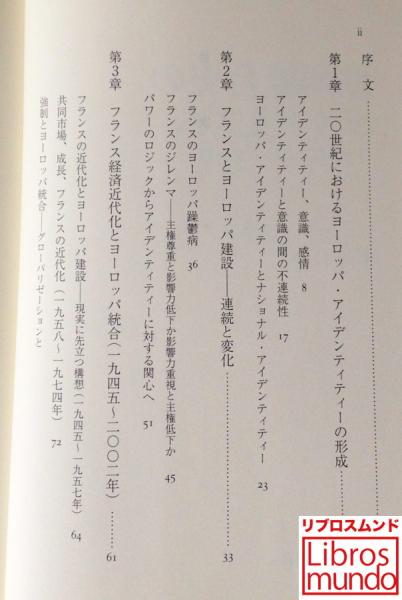 ii
序文………………
第1章 二〇世紀におけるヨーロッパ・アイデンティティーの形成………
アイデンティティー、意識、感情 8
アイデンティティーと意識の間の不連続性 17
ヨーロッパ・アイデンティティーとナショナル・アイデンティティー 23
第2章 フランスとヨーロッパ建設――連続と変化………33
フランスのヨーロッパ躁鬱病 36
フランスのジレンマ――主権尊重と影響力低下か影響力重視と主権低下か 45
パワーのロジックからアイデンティティーに対する関心へ 51
第3章 フランス経済近代化とヨーロッパ統合(一九四五〜二〇〇二年)………61
フランスの近代化とヨーロッパ建設――現実に先立つ構想(一九四五〜一九五七年) 64
共同市場、成長、フランスの近代化(一九五八〜一九七四年) 72
強制とヨーロッパ統合――グローバリゼーションと
リブロスムンド
Libros
mundo